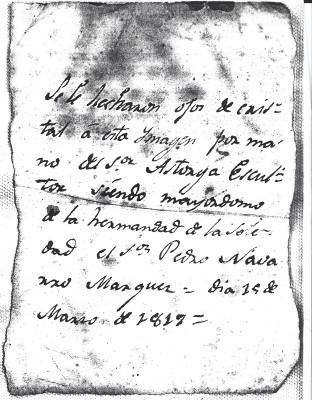 Se le hecharon ojos de cris=
tal á esta Ymagen por ma=
no del Sor Astorga Escul=
tor siendo mayordomo
de la hermandad de la Sole=
dad el Sor Pedro Nava
rro Marquez = dia 15 de
Marzo de 1817=